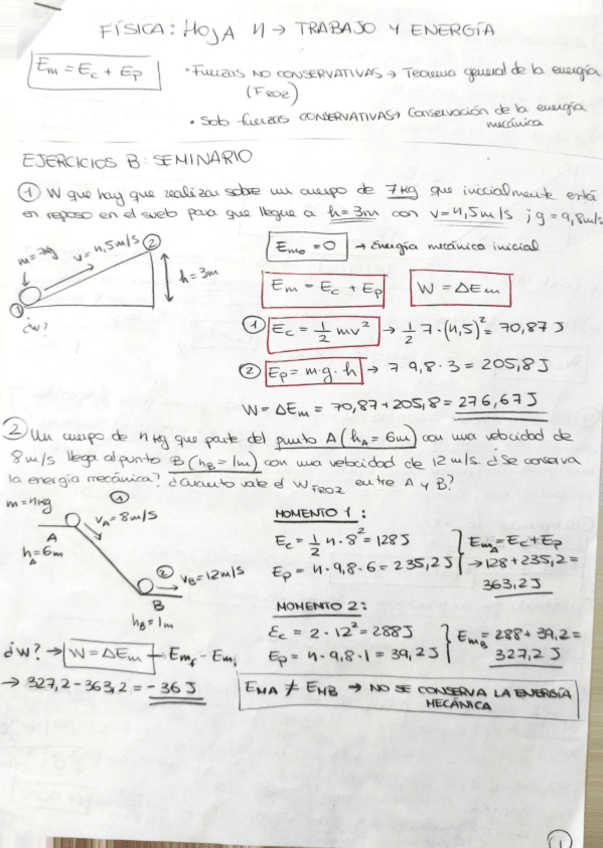 FÍSICA: HOJA 4 → TRABAJO Y ENERGÍA
Em = Ec + Ep
• Fuerzas NO CONSERVATIVAS → Teorema general de la energía
(FROZ)
• Solo fuerzas CONSERVATIVAS → Conservación de la energía
mecánica
EJERCICIOS B: SEMINARIO
① W que hay que realizar sobre un cuerpo de 7kg que inicialmente está
en reposo en el suelo para que llegue a h=3m con v=4,5m/s ; g=9,8m/s
m=7kg
v=4,5m/s ②
h=3m
①
¿W?
Em₀=0 → Energía mecánica inicial
Em = Ec + Ep
W = ΔEm
① Ec = 1/2 mv² → 1/2 7·(4,5)² = 70,87 J
② Ep = m·g·h → 7·9,8·3 = 205,8 J
W = ΔEm = 70,87+205,8 = 276,67 J
② Un cuerpo de 4kg que parte del punto A (hA=6m) con una velocidad de
8m/s llega al punto B (hB=1m) con una velocidad de 12 m/s. ¿Se conserva
la energía mecánica? ¿Cuánto vale el WFROZ entre A y B?
m=4kg
①
vA=8m/s
A
hA=6m
② vB=12m/s
B
hB=1m
MOMENTO 1:
Ec = 1/2 4·8² = 128 J
Ep = 4·9,8·6 = 235,2 J
EmA = Ec+Ep
→ 128+235,2=
363,2 J
MOMENTO 2:
Ec = 2·12² = 288 J
Ep = 4·9,8·1 = 39,2 J
EmB = 288+39,2=
327,2 J
¿W? → W = ΔEm → Emf - Emi
→ 327,2 - 363,2 = -36 J
EMA ≠ EMB → NO SE CONSERVA LA ENERGÍA
MECÁNICA
1